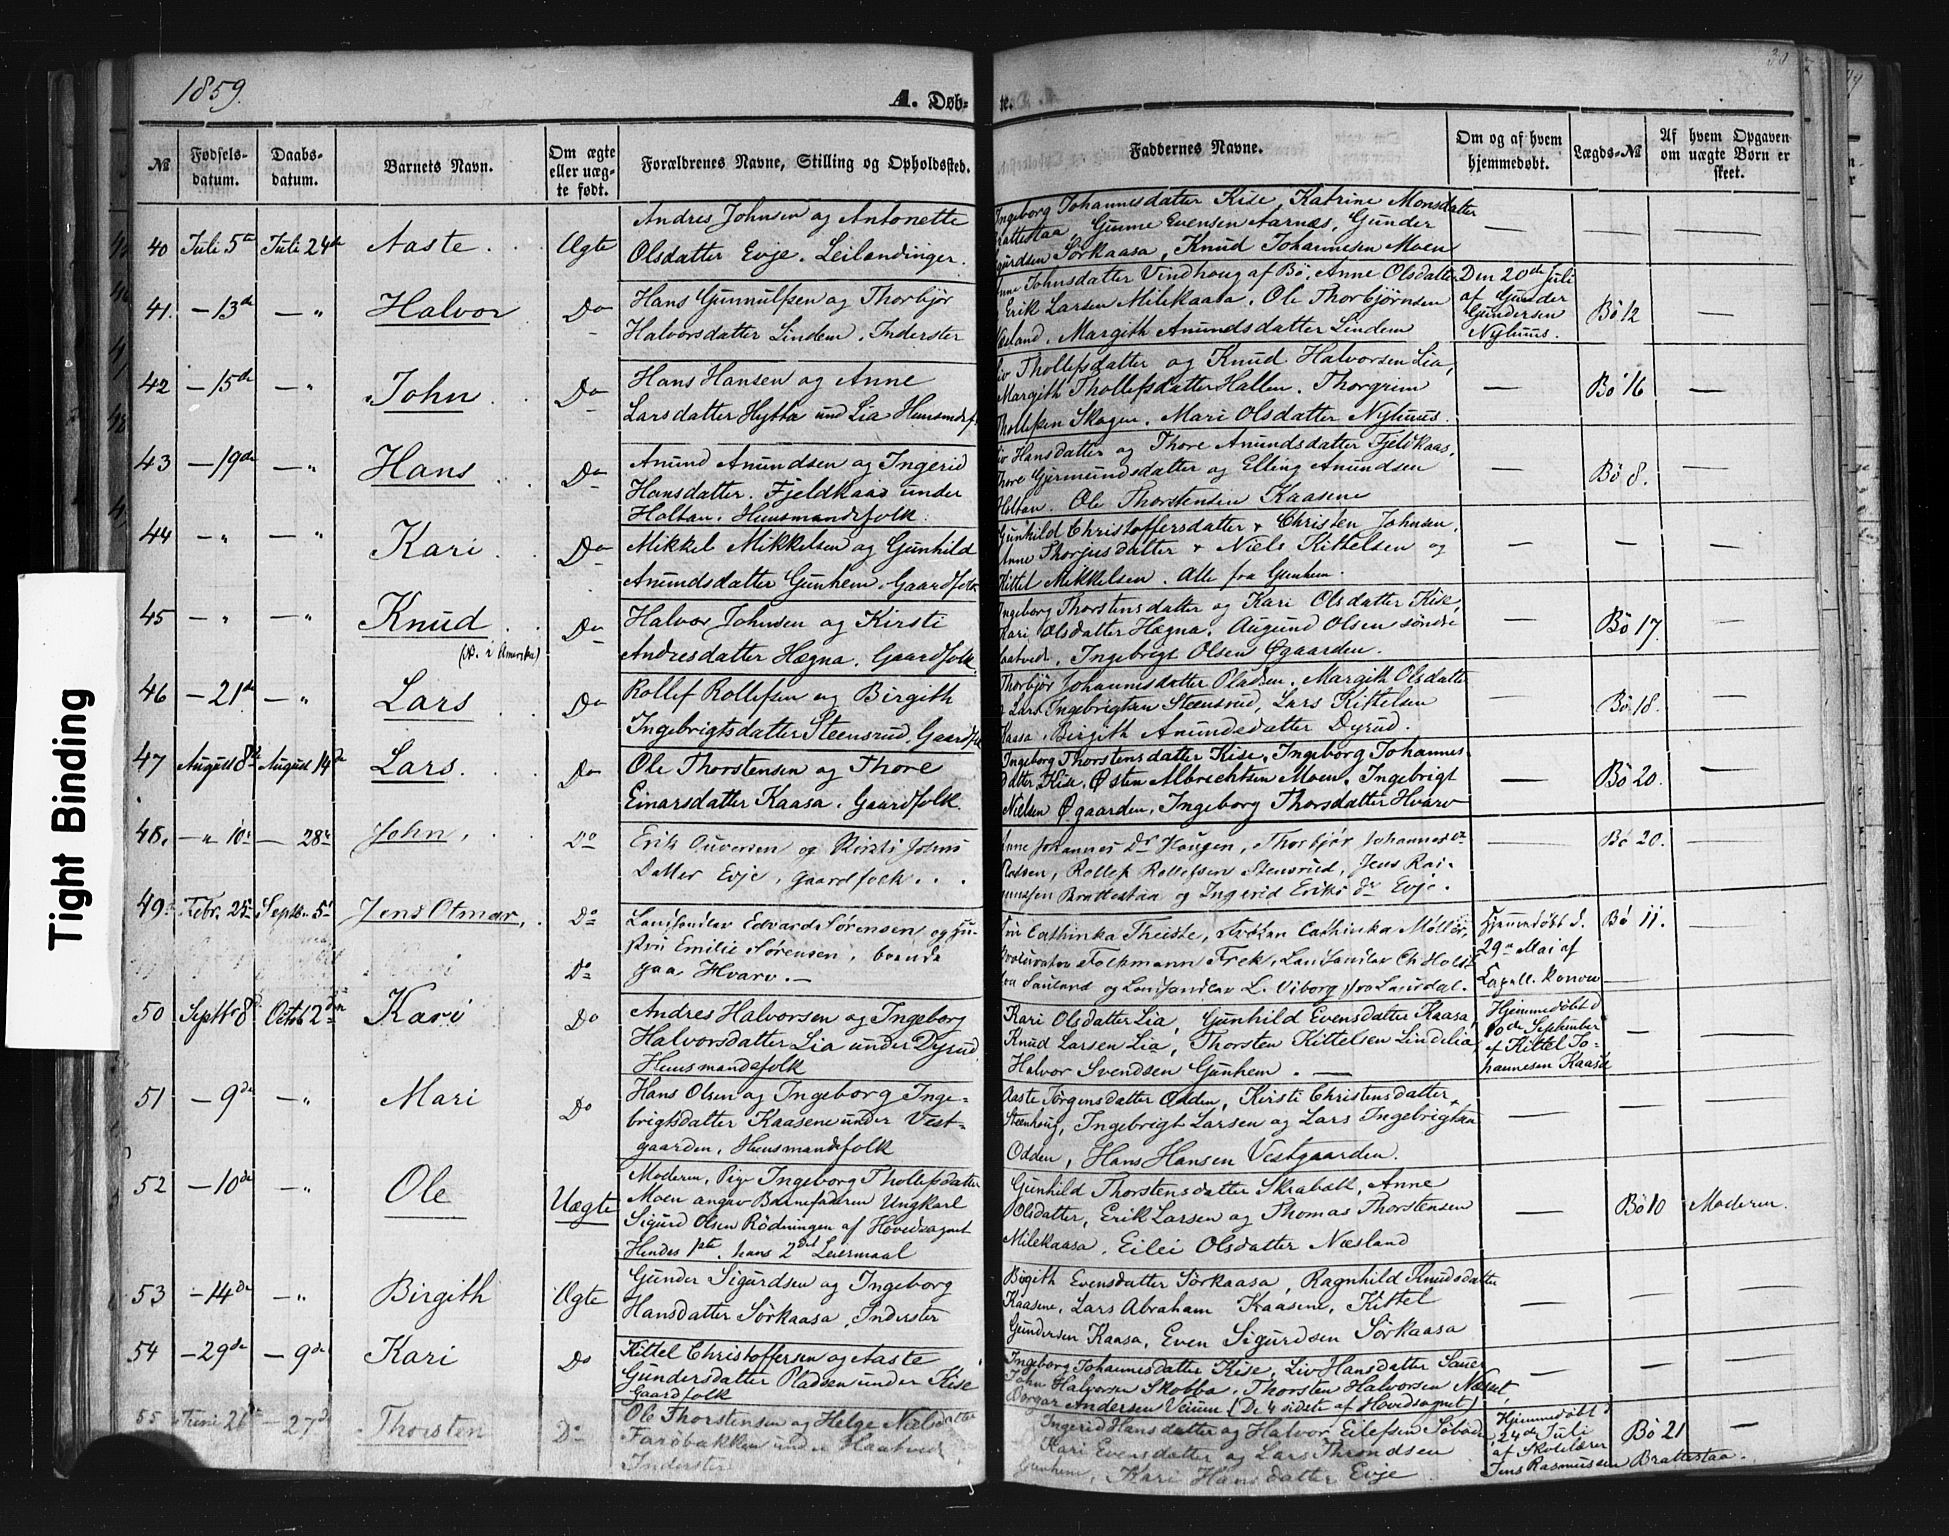 1859.
A. Døb-
te.
30
№
Fødsels-
datum.
Daabs-
datum.
Barnets Navn.
Om ægte
eller uæg-
te født.
Forældrenes Navne, Stilling og Opholdssted.
Faddernes Navne.
Om og af hvem
hjemmedøbt.
Lægds-№
Af hvem Opgaven
om uægte Børn er
skeet.
40 Juli 5te Juli 24de Aaste. Ægte
Andres Johnsen og Antonette
Olsdatter Evje. Leilændinger.
Ingeborg Johannesdatter Kise, Katrine Monsdatter
Brattestaa, Gunne Evensen Aarnæs, Gunder
Sigurdsen Sörkaasa, Knud Johannesen Moen
41. — 13de — " Halvor Do
Hans Gunnulfsen og Thorbjör
Halvorsdatter Lindem. Inderster
Anne Johnsdatter Vindhoug af Bö, Anne Olsdatter
Erik Larsen Milekaasa. Ole Thorbjørnsen
Næsland. Margith Anundsdatter Lindem
Den 20de Juli
af Gunder
Gundersen
Nyhuus.
Bö 12 —
42 — 15de — " John Do
Hans Hansen og Anne
Larsdatter Hytta und Lia Huusmdsf.
Liv Thollefsdatter og Knud Halvorsen Lia,
Margith Thollefsdatter Hallen. Thorgrim
Thollefsen Skogen. Mari Olsdatter Nyhuus.
— Bö 16 —
43 — 19de — " Hans Do
Anund Anundsen og Ingerid
Hansdatter. Fjeldkaas under
Holtan. Huusmandsfolk.
Liv Hansdatter og Thore Anundsdatter Fjeldkaas,
Thore Gjermundsdatter og Elling Anundsen
Holtan. Ole Thorstensen Kaasene
— Bö 8. —
44 — " — " Kari Do
Mikkel Mikkelsen og Gunhild
Anundsdatter Gunhem. Gaardfolk
Gunhild Christoffersdatter & Christen Johnsen,
Anne Thorjusdatter & Niels Kittelsen og
Kittel Mikkelsen. Alle fra Gunhem.
— — —
45 — " — " Knud Do
(N. i Amerika)
Halvor Johnsen og Kirsti
Andresdatter Hægna. Gaardfolk
Ingeborg Thorstensdatter og Kari Olsdatter Kise,
Kari Olsdatter Hægna. Augund Olsen søndre
Haatvedt, Ingebrigt Olsen Øgaarden.
— Bö 17. —
46 — 21de — " Lars Do
Rollef Rollefsen og Birgith
Ingebrigtsdatter Steensrud. Gaardfolk
Thorbjör Johannesdatter Pladsen. Margith Olsdatter
& Lars Ingebrigtsen Steensrud, Lars Kittelsen
Kaasa. Birgith Anundsdatter Dyrud.
— Bö 18. —
47 August 8de August 14de Lars. Do
Ole Thorstensen og Thore
Einarsdatter Kaasa. Gaardfolk.
Ingeborg Thorstensdatter Kise. Ingeborg Johannes-
datter Kise, Østen Albrechtsen Moen. Ingebrigt
Nielsen Øgaarden, Ingeborg Thorsdatter Hvarv
— Bö 20. —
48. — " 10de — 28de John, Do
Erik Ouversen og Kirsti Johns
Datter Evje, gaardfolk.
Anne Johannes Dr Haugen, Thorbjör Johannesdr
Pladsen, Rollef Rollefsen Stensrud, Jens Ras-
mussen Brattestaa og Ingerid Eriks dr Evje.
— Bö 20. —
49. Febr. 25de Septb. 5te Jens Otmar, Do
Landhandler Edvard Sørensen og Hu-
stru Emilie Sørensen, boende
paa Hvarv. —
Fru Cathinka Theiste, Frøken Cathinka Møller,
Proprietær Folkmann Frek, Landhandler Ch. Holst
fra Sauland og Landhandler L. Viborg fra Laurdal.
Hjemmedøbt d.
29de Mai af
Capell. Konow
Bö 11. —
Do
50 Septbr 8de Octob 2den Kari Do
Andres Halvorsen og Ingeborg
Halvorsdatter Lia under Dyrud
Huusmandsfolk
Kari Olsdatter Lia, Gunhild Evensdatter Kaasa,
Knud Larsen Lia, Thorsten Kittelsen Lindelia,
Halvor Svendsen Gunhem. —
Hjemmedöbt d
10de September
af Kittel Jo-
hannesen Kaasa
— —
51 — 9de — " Mari Do
Hans Olsen og Ingeborg Inge-
brigtsdatter Kaasene under Vest-
gaarden, Huusmandsfolk
Aaste Jörgensdatter Odden, Kirsti Christensdatter
Steenhoug, Ingebrigt Larsen og Lars Ingebrigtsen
Odden, Hans Hansen Vestgaarden.
— — —
52 — 10de — " Ole Uægte
Moderen, Pige Ingeborg Thollefsdatter
Moen angav Barnefaderen Ungkarl
Sigurd Olsen Rödningen af Hovedsognet
Hendes 1ste, hans 2det Leiermaal
Gunhild Thorstensdatter Skrabæk, Anne
Olsdatter, Erik Larsen og Thomas Thorstensen
Milekaasa. Eilei Olsdatter Næsland
— Bö 10 Moderen.
53 — 14de — " Birgith Ægte
Gunder Sigurdsen og Ingeborg
Hansdatter Sörkaasa, Inderster
Bøgith Evensdatter Sörkaasa, Ragnhild Knudsdatter
Kaasene, Lars Abraham Kaasene, Kittel
Gundersen Kaasa, Even Sigurdsen Sörkaasa
— — —
54 — 29de — 9de Kari Do
Kittel Christoffersen og Aaste
Gundersdatter Pladsen under Kise
Gaardfolk
Ingeborg Johannesdatter Kise, Liv Hansdatter Sauer
John Halvorsen Skobba, Thorsten Halvorsen Næset,
Borgar Andersen Veium (De 4 sidste af Hovedsognet)
— — —
55 Juni 21de — 27de Thorsten Do
Ole Thorstensen og Helge Nielsdatter
Farobakken under Haatvedt
Inderster
Ingerid Hansdatter og Halvor Eilefsen Söboden
Kari Evensdatter og Lars Throndsen
Gunhem, Kari Hansdatter Evje
Hjemmedöbt d
24de Juli
af Skolelærer
Jens Rasmussen Brattestaa.
Bö 21 —
Tight Binding